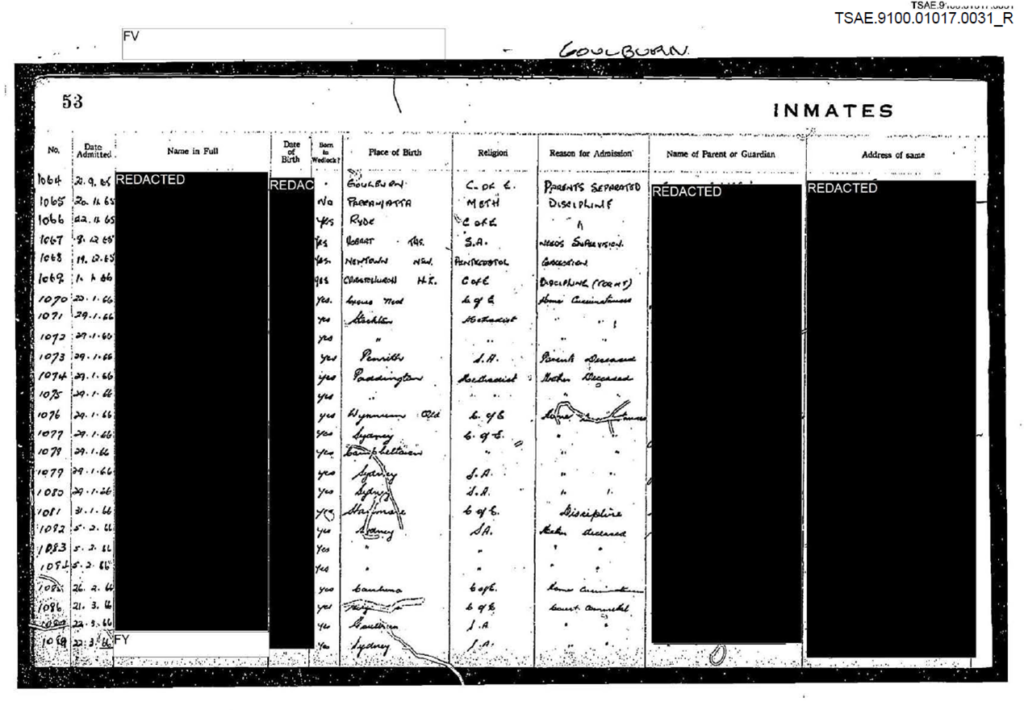 TSAE.9100.01017.0031_R
FV
GOULBURN.
53
INMATES
No. Date Admitted Name in Full Date of Birth Born in Wedlock? Place of Birth Religion Reason for Admission Name of Parent or Guardian Address of same
1064 2.9.65 REDACTED REDAC GOULBURN C. OF E. PARENTS SEPARATED REDACTED REDACTED
1065 20.11.65 No PARRAMATTA METH DISCIPLINE
1066 22.11.65 Yes RYDE C OF E "
1067 8.12.65 Yes TAS. S.A. NEEDS SUPERVISION.
1068 19.12.65 Yes. NEWTOWN NSW. PENTECOSTAL
1069 1.1.66 Yes N.Z. C OF E DISCIPLINE
1070 22.1.66 Yes. C of E Home Circumstances
1071 29.1.66 Yes Stockton Methodist " "
1072 29.1.66 Yes " " "
1073 29.1.66 Yes Penrith S.A. Parents Deceased
1074 29.1.66 Yes Paddington Methodist Mother Deceased
1075 29.1.66 Yes " " " "
1076 29.1.66 Yes Wynnum Qld C. of E Home Circumstances
1077 29.1.66 Yes Sydney C. of E. " "
1078 29.1.66 Yes Campbelltown " " "
1079 29.1.66 Yes Sydney S.A. " "
1080 29.1.66 Yes Sydney S.A. " "
1081 31.1.66 Yes C of E. Discipline
1082 5.2.66 Yes Sydney SA. Mother deceased
1083 5.2.66 Yes " " " "
1084 5.2.66 Yes " " "
1085 26.2.66 Yes Canberra C of E. Home Circumstances
1086 21.3.66 Yes C of E Court Committal
22.3.66 Yes S.A " "
22.3.66 FY Yes Sydney S.A. " "